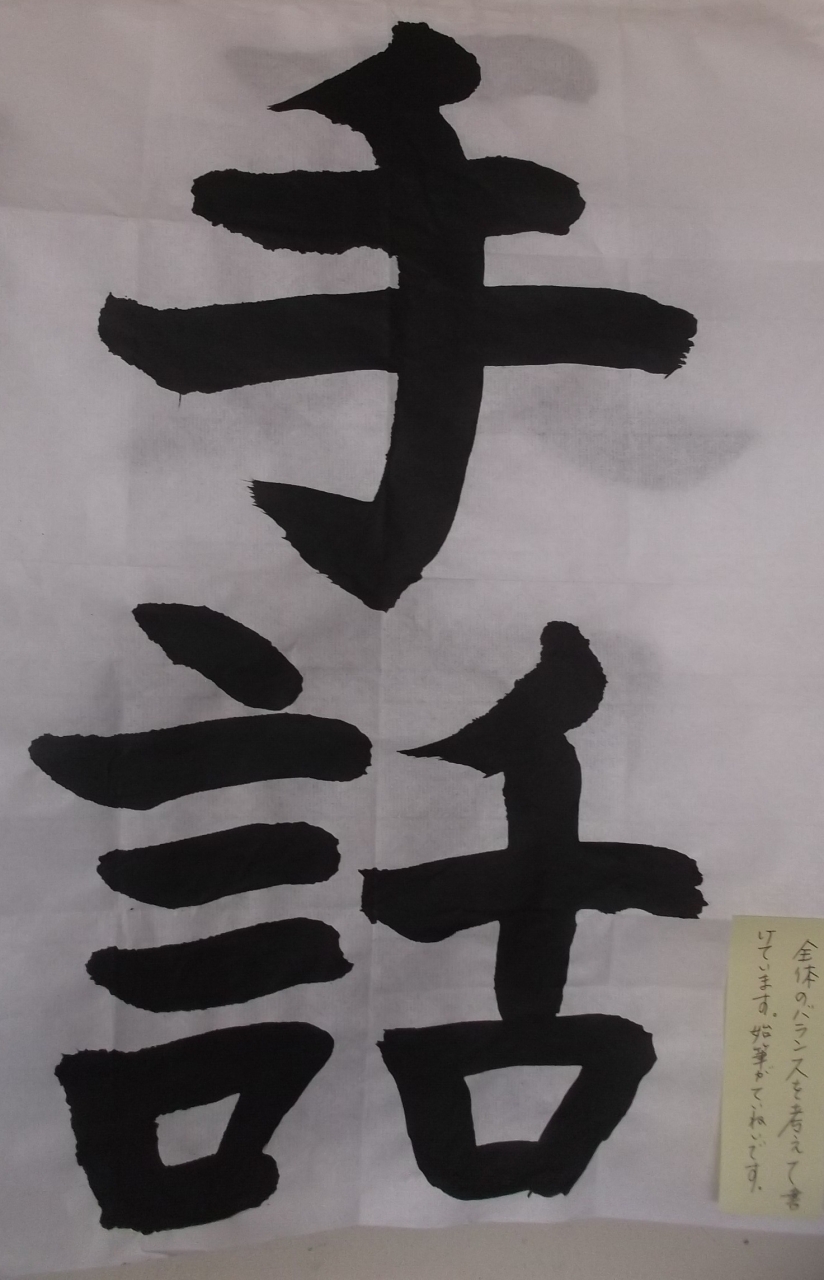 手話
全体のバランスを考えて書
けています。始筆がていねいです。